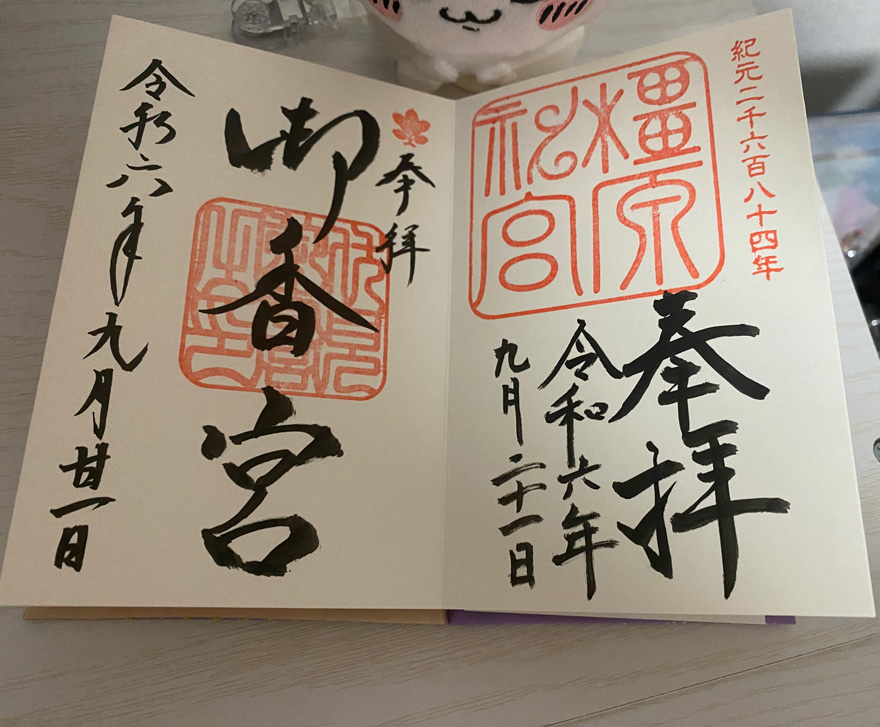 紀元二千六百八十四年
橿原
神宮
奉拝
令和六年
九月二十一日
奉拝
御香宮
令和六年九月廿一日